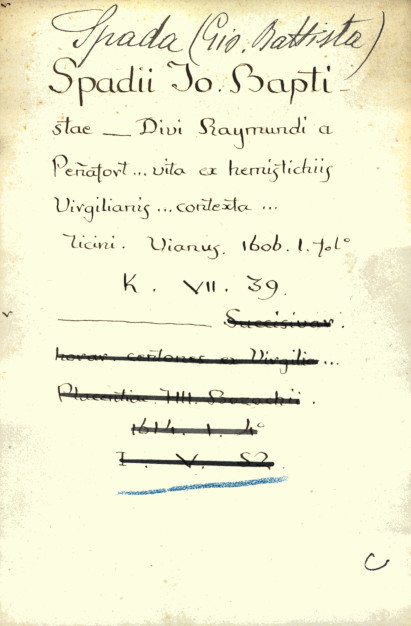 Spada (Gio. Battista)
Spadii Io. Bapti-
stae — Divi Raymundi a
Peñafort... vita ex hemistichiis
Virgilianis ... contexta ...
Ticini. Vianus. 1606. 1. fol°
K. VII. 39.
Succisivar.
horar. centones ex Virgilio ...
Placentiae. Bazachii.
1614. 1. 4°
I. V. 52.
C